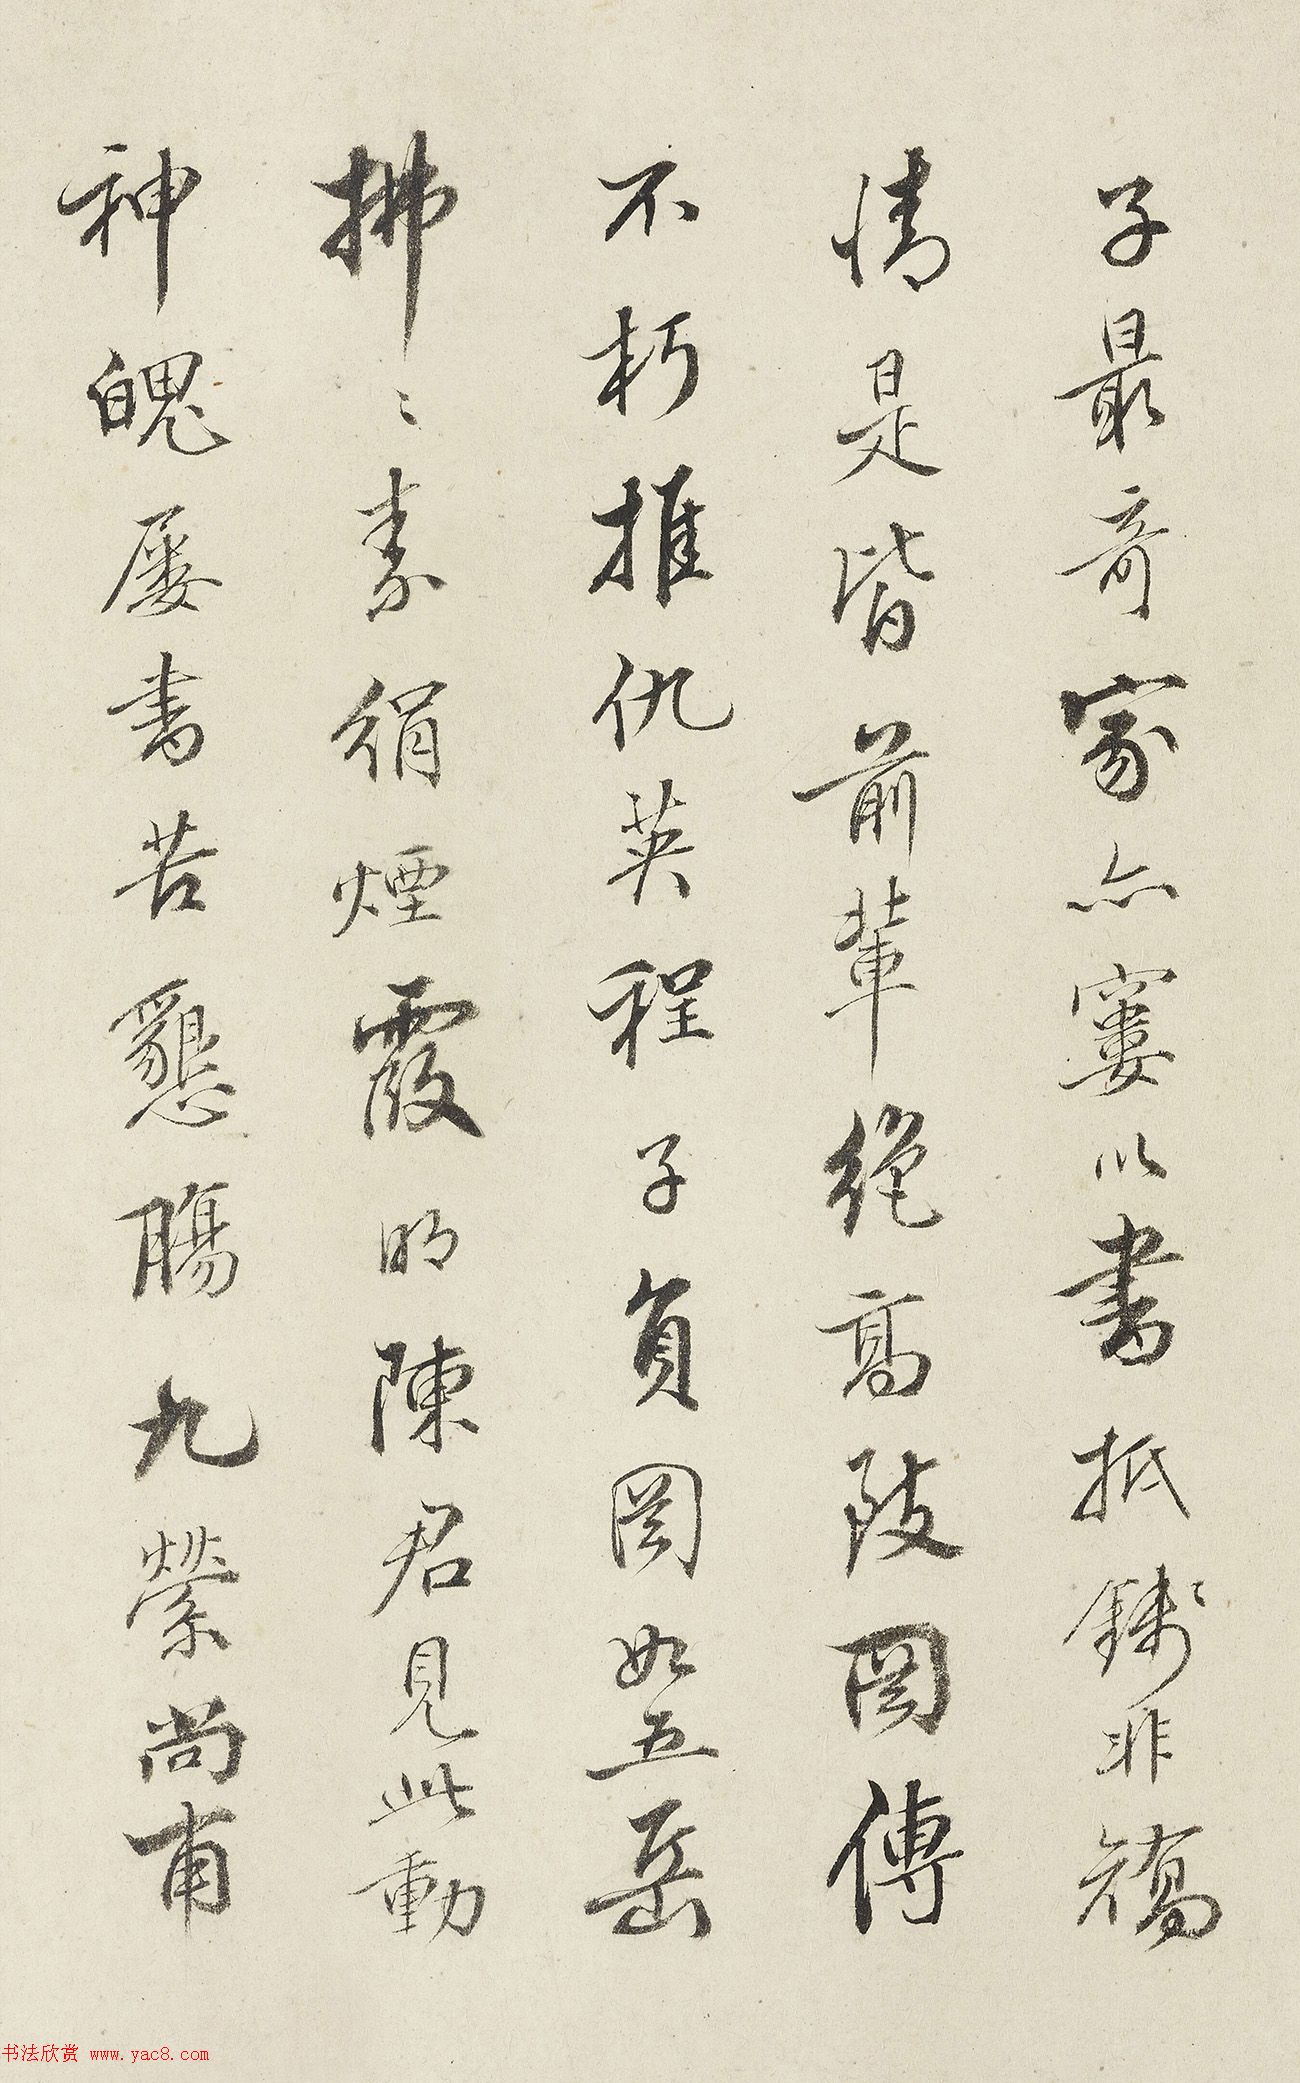 子最奇家亦窶以書抵錢錢非矯
情是皆前輩絕高陂圖傳
不朽推仇英程子負圖如五岳
拂拂素絹煙霞明陳君見此動
神魄屢書苦懇腸九縈尚甫
书法欣赏 www.yac8.com